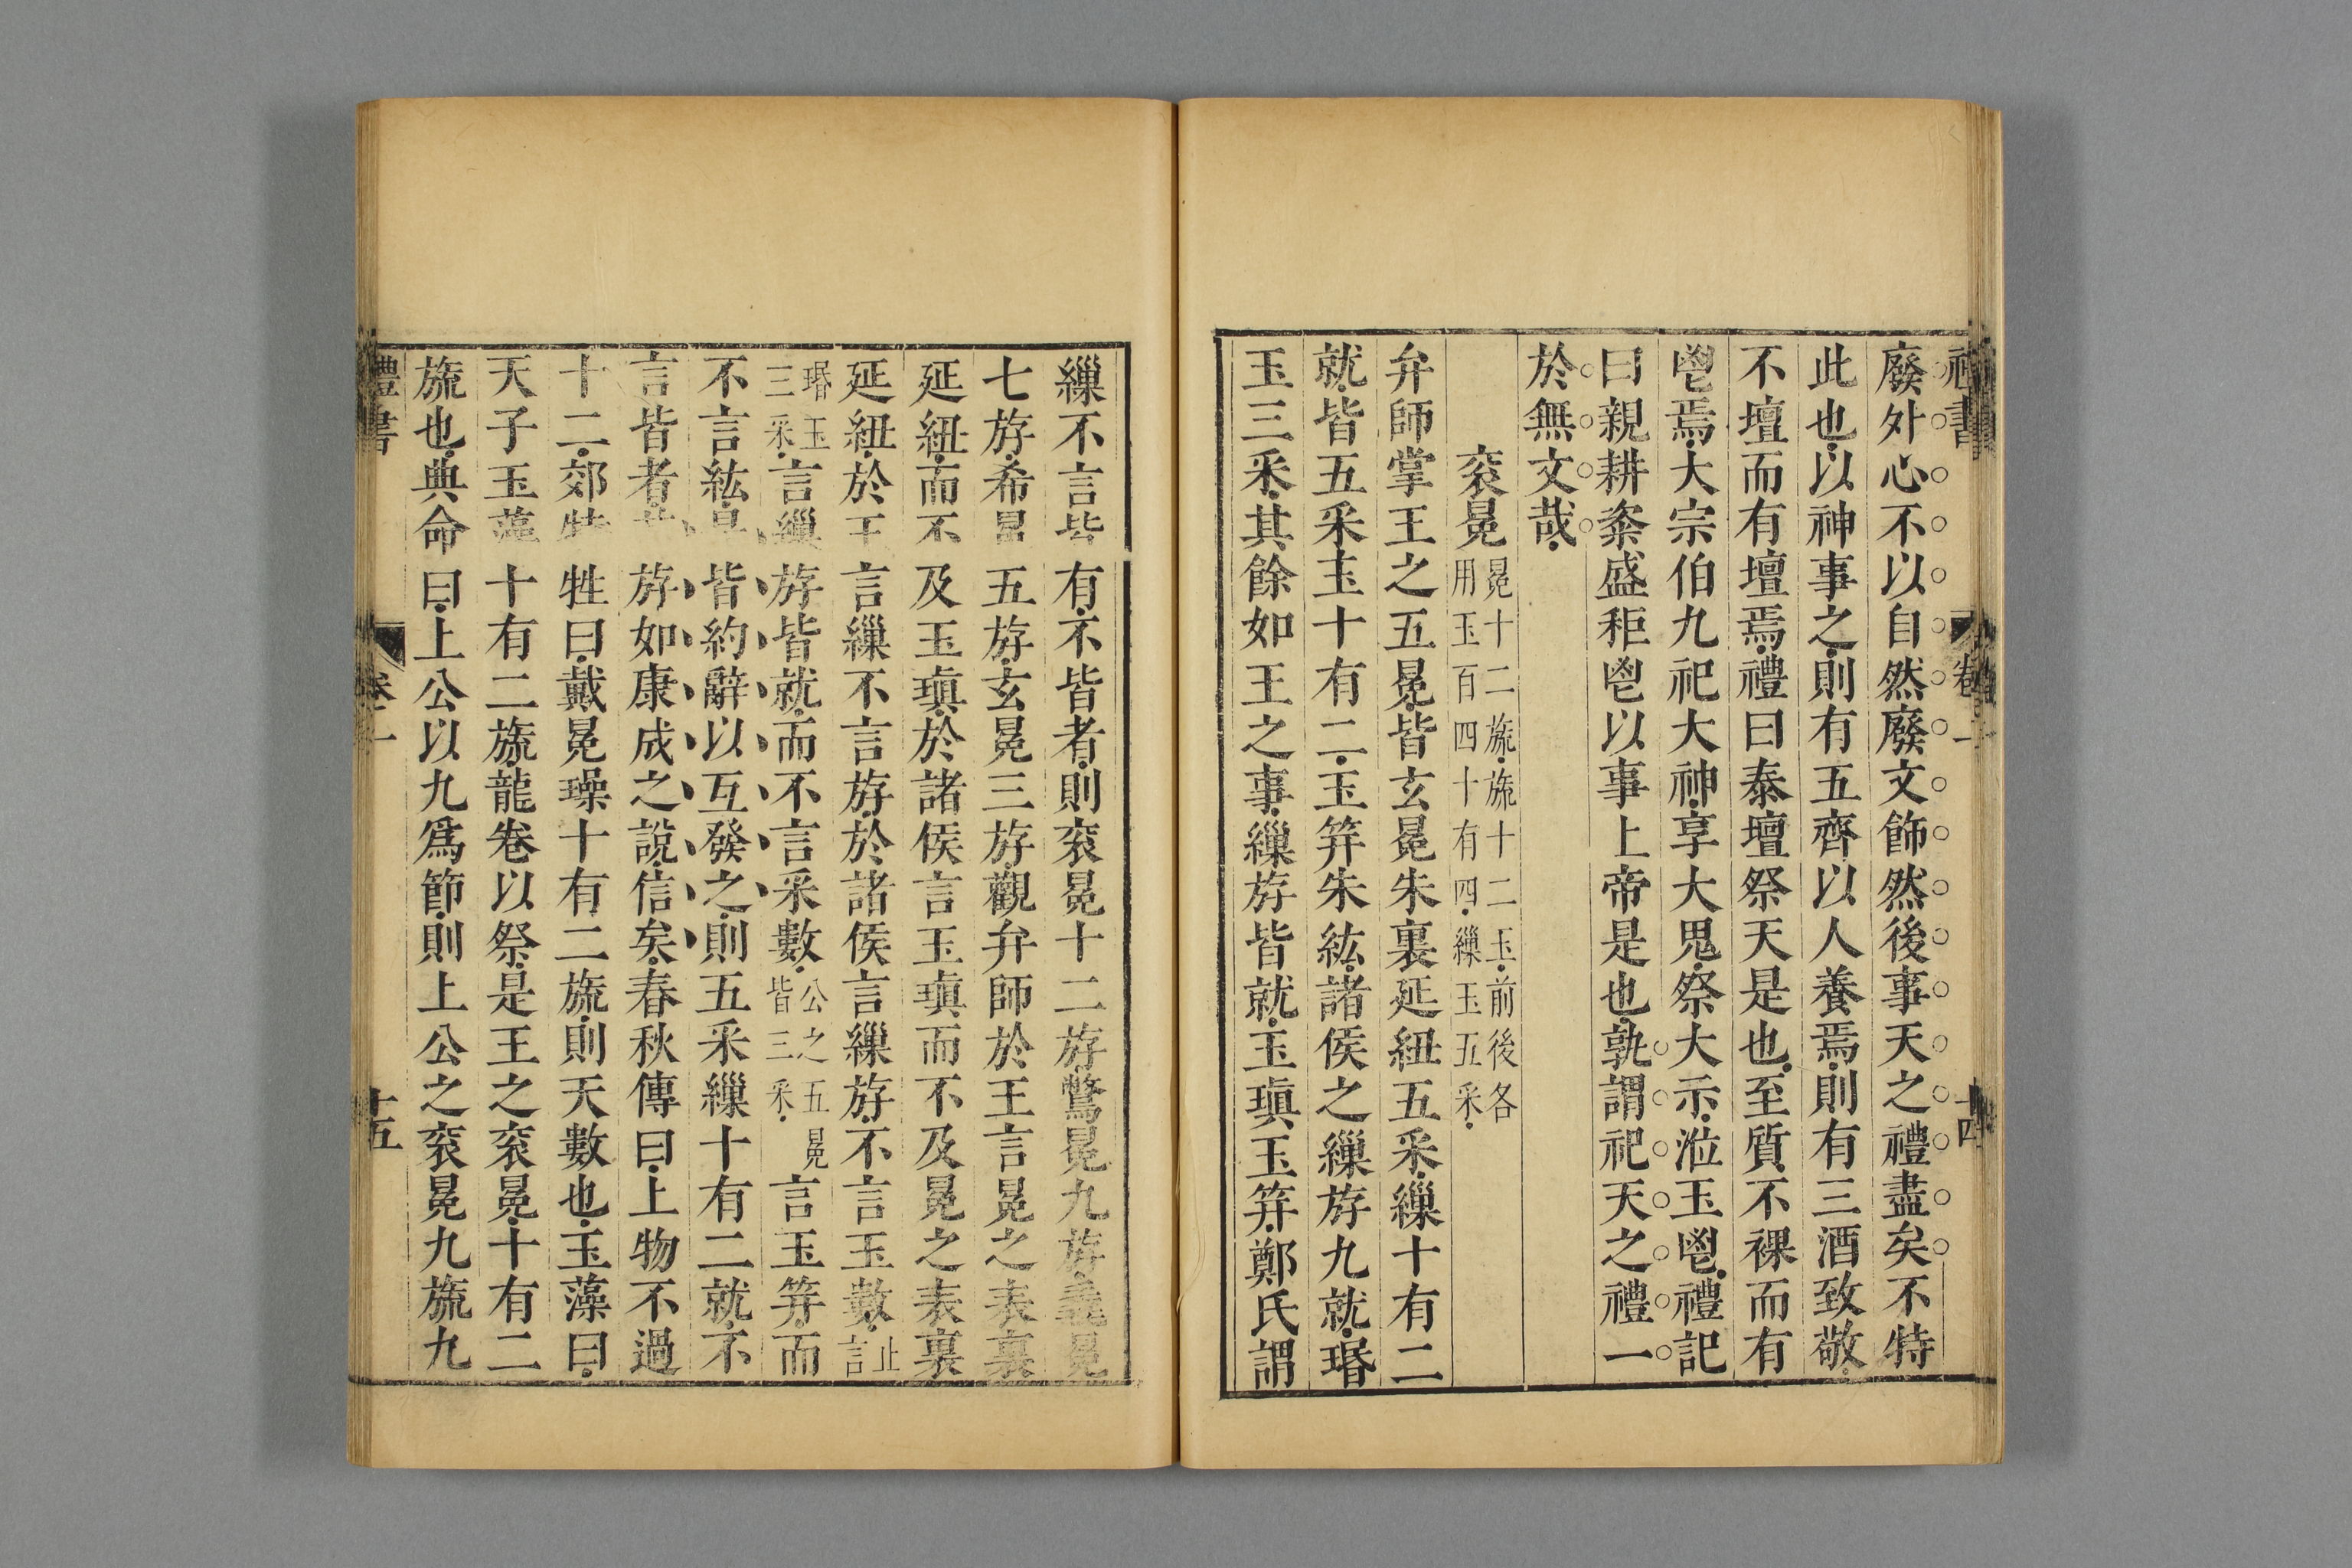 禮書 卷一 十四
廢外心不以自然廢文飾然後事天之禮盡矣不特
此也以神事之則有五齊以人養焉則有三酒致敬
不壇而有壇焉禮曰泰壇祭天是也至質不祼而有
鬯焉大宗伯九祀大神享大鬼祭大示涖玉鬯禮記
曰親耕粢盛秬鬯以事上帝是也孰謂祀天之禮一
於無文哉
袞冕 冕十二旒旒十二玉前後各用玉百四十有四繅玉五采
弁師掌王之五冕皆玄冕朱裏延紐五采繅十有二
就皆五采玉十有二玉笄朱紘諸侯之繅斿九就瑉
玉三采其餘如王之事繅斿皆就玉瑱玉笄鄭氏謂
繅不言皆有不皆者則袞冕十二斿鷩冕九斿毳冕
七斿希冕五斿玄冕三斿觀弁師於王言冕之表裏
延紐而不及玉瑱於諸侯言玉瑱而不及冕之表裏
延紐於王言繅不言斿於諸侯言繅斿不言玉數止言
瑉玉三采言繅斿皆就而不言采數公之五冕皆三采言玉笄而
不言紘是皆約辭以互發之則五采繅十有二就不
言皆者斿如康成之說信矣春秋傳曰上物不過
十二郊特牲曰戴冕璪十有二旒則天數也玉藻曰
天子玉藻十有二旒龍卷以祭是王之袞冕十有二
旒也典命曰上公以九爲節則上公之袞冕九旒九
禮書 卷一 十五